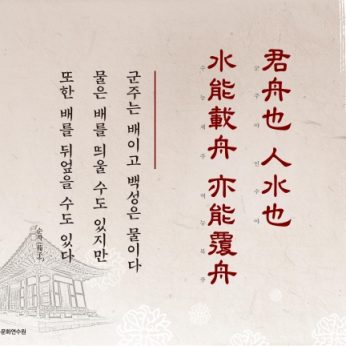 君舟也 人水也
군주야 인수야
水能載舟 亦能覆舟
수능재주 역능복주
군주는 배이고 백성은 물이다
물은 배를 띄울 수도 있지만
또한 배를 뒤엎을 수도 있다
순자(荀子)
문화연수원